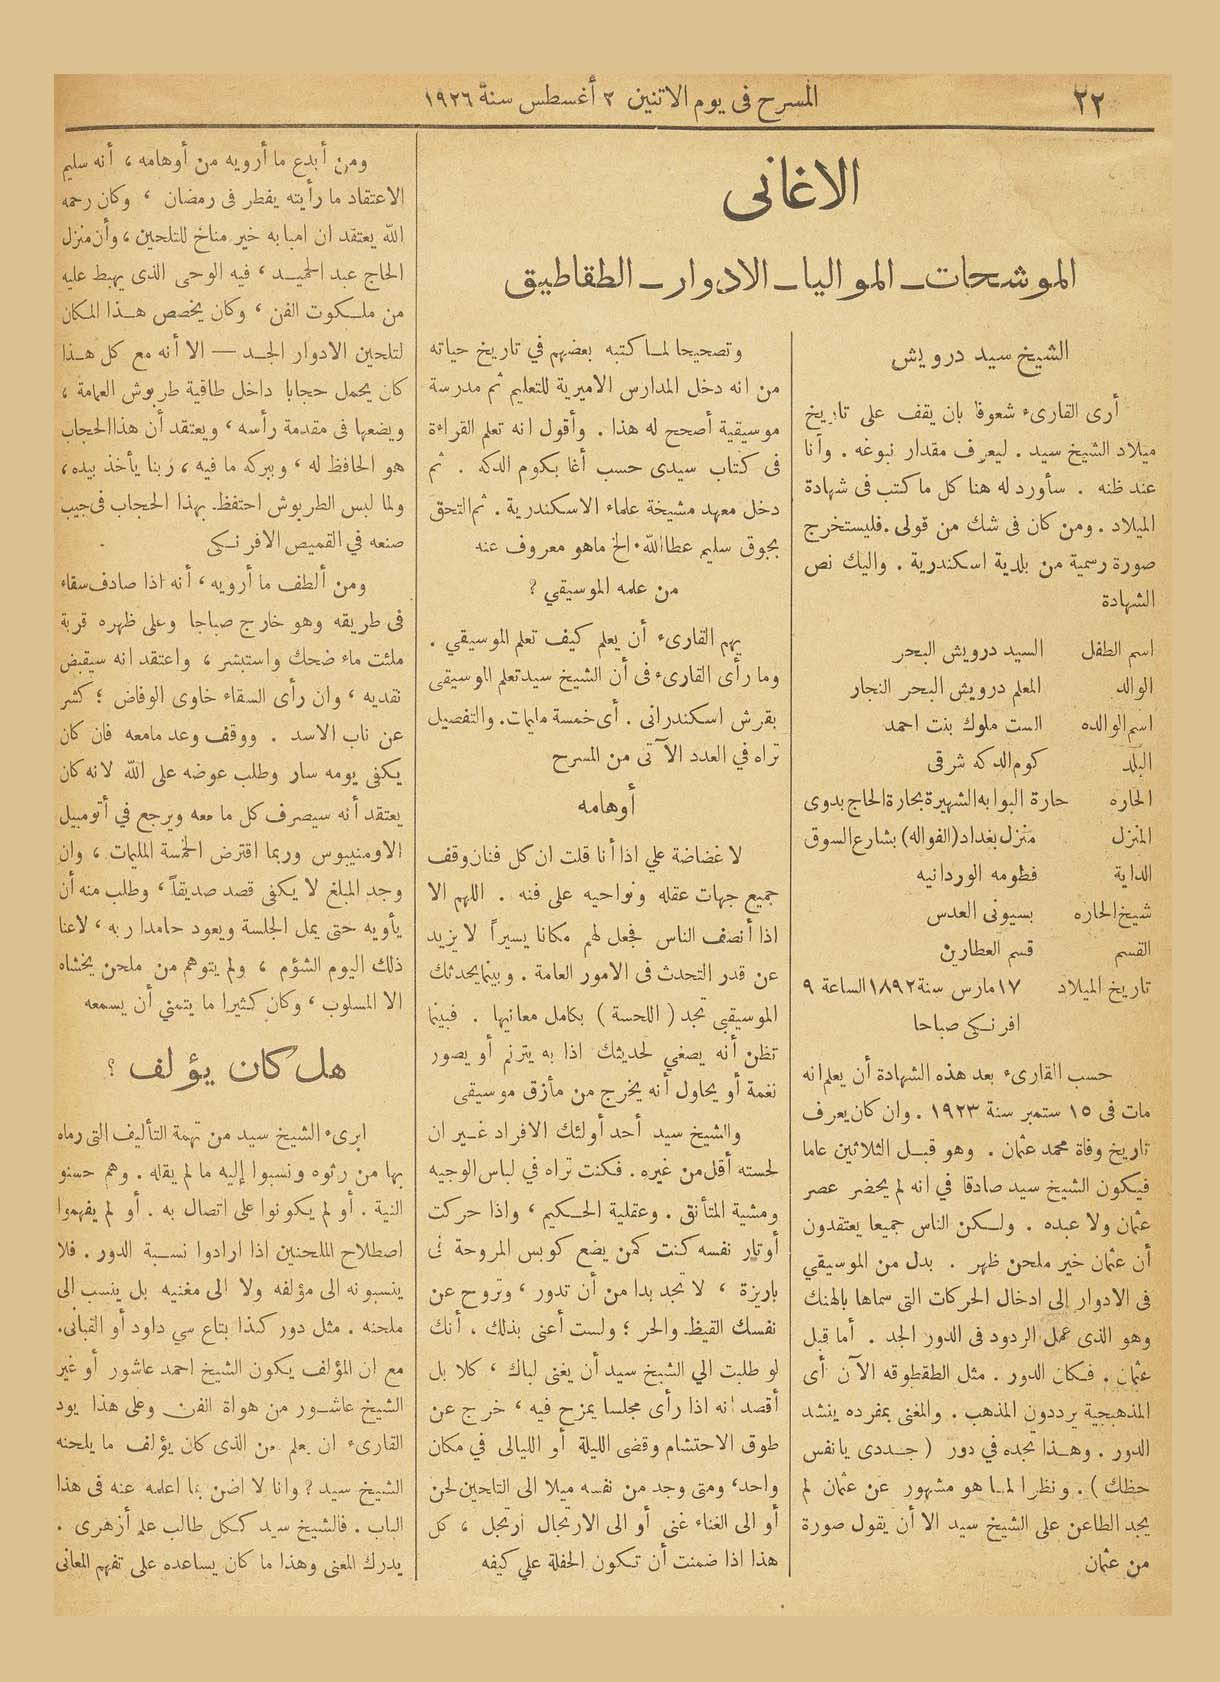 ٢٢
المسرح فى يوم الاتنين ٣ أغسطس سنة ١٩٢٦
الاغانى
الموشحات ـ المواليا ـ الادوار ـ الطقاطيق
الشيخ سيد درويش
أرى القارىء شعوفا بان يقف على تاريخ
ميلاد الشيخ سيد . ليعرف مقدار نبوغه . وأنا
عند ظنه . سأورد له هنا كل ما كتب فى شهادة
الميلاد . ومن كان فى شك من قولى . فليستخرج
صورة رسمية من بلدية اسكندرية . واليك نص
الشهادة
اسم الطفل السيد درويش البحر
الوالد المعلم درويش البحر النجار
اسم الوالده الست ملوك بنت احمد
البلد كوم الدكه شرقى
الحاره حارة البوابه الشهيرة بحارة الحاج بدوى
المنزل منزل بغداد (الفواله) بشارع السوق
الداية فطومه الوردانيه
شيخ الحاره بسيونى العدس
القسم قسم العطارين
تاريخ الميلاد ١٧ مارس سنة ١٨٩٢ الساعة ٩
افرنكى صباحا
حسب القارىء بعد هذه الشهادة أن يعلم انه
مات فى ١٥ ستمبر سنة ١٩٢٣ . وان كان يعرف
تاريخ وفاة محمد عثمان . وهو قبل الثلاثين عاما
فيكون الشيخ سيد صادقا في انه لم يحضر عصر
عثمان ولا عبده . ولكن الناس جميعا يعتقدون
أن عثمان خير ملحن ظهر . بدل من الموسيقي
فى الادوار إلى ادخال الحركات التى سماها بالهنك
وهو الذى عمل الردود فى الدور الجد . أما قبل
عثمان . فكان الدور . مثل الطقطوقه الآن أى
المذهبجية يرددون المذهب . والمغنى بمفرده ينشد
الدور . وهذا نجده في دور ( جددى يا نفس
حظك ) . ونظرا لما هو مشهور عن عثمان لم
يجد الطاعن على الشيخ سيد الا أن يقول صورة
من عثمان
وتصحيحا لما كتبه بعضهم في تاريخ حياته
من انه دخل المدارس الاميرية للتعليم ثم مدرسة
موسيقية أصحح له هذا . وأقول انه تعلم القراءة
فى كتاب سيدى حسب أغا بكوم الدكه . ثم
دخل معهد مشيخة علماء الاسكندرية . ثم التحق
بجوق سليم عطا الله . الخ ماهو معروف عنه
من علمه الموسيقي ؟
يهم القارىء أن يعلم كيف تعلم الموسيقي .
وما رأى القارىء فى أن الشيخ سيد تعلم الموسيقى
بقرش اسكندرانى . أى خمسة مليمات . والتفصيل
تراه في العدد الآتى من المسرح
أوهامه
لا غضاضة علي اذا أنا قلت ان كل فنان وقف
جميع جهات عقله ونواحيه على فنه . اللهم الا
اذا أنصف الناس فجعل لهم مكانا يسيراً لا يزيد
عن قدر التحدث فى الامور العامة . وبينما يحدثك
الموسيقي تجد ( اللحسة ) بكامل معانيها . فبينما
تظن أنه يصغي لحديثك اذا به يترنم أو يصور
نغمة أو يحاول أنه يخرج من مأزق موسيقى
والشيخ سيد أحد أولئك الافراد غير ان
لحسته أقل من غيره . فكنت تراه في لباس الوجيه
ومشية المتأنق . وعقلية الحكيم ، واذا حركت
أوتار نفسه كنت كمن يضع كوبس المروحة فى
باريزة ، لا تجد بدا من أن تدور ، وتروح عن
نفسك القيظ والحر ؛ ولست أعنى بذلك ، أنك
لو طلبت الي الشيخ سيد أن يغنى لباك ، كلا بل
أقصد انه اذا رأى مجلسا يمزح فيه ، خرج عن
طوق الاحتشام وقضى الليلة أو الليالى في مكان
واحد ، ومتى وجد من نفسه ميلا الى التلحين لحن
أو الى الغناء غنى أو الى الارتجال ارتجل ، كل
هذا اذا ضمنت أن تكون الحفلة علي كيفه
ومن أبدع ما أرويه من أوهامه ، أنه سليم
الاعتقاد ما رأيته يفطر فى رمضان ، وكان رحمه
الله يعتقد ان امبابه خير مناخ للتلحين ، وأن منزل
الحاج عبد الحميد ، فيه الوحى الذى يهبط عليه
من ملكوت الفن ، وكان يخصص هذا المكان
لتلحين الادوار الجد — الا أنه مع كل هذا
كان يحمل حجابا داخل طاقية طربوش العمامة ،
ويضعها فى مقدمة رأسه ، ويعتقد أن هذا الحجاب
هو الحافظ له ، وببركه ما فيه ، ربنا يأخذ بيده ،
ولما لبس الطربوش احتفظ بهذا الحجاب فى جيب
صنعه في القميص الافرنكى
ومن ألطف ما أرويه ، أنه اذا صادف سقاء
فى طريقه وهو خارج صباحا وعلى ظهره قربة
ملئت ماء ضحك واستبشر ، واعتقد انه سيقبض
نقديه ، وان رأى السقاء خاوى الوفاض ؛ كشر
عن ناب الاسد . ووقف وعد مامعه فان كان
يكفى يومه سار وطلب عوضه على الله لانه كان
يعتقد أنه سيصرف كل ما معه ويرجع في أتومبيل
الاومنيبوس وربما اقترض الخمسة المليمات ، وان
وجد المبلغ لا يكفى قصد صديقاً ، وطلب منه أن
يأويه حتى يمل الجلسة ويعود حامدا ربه ، لاعنا
ذلك اليوم الشؤم ، ولم يتوهم من ملحن يخشاه
الا المسلوب ، وكان كثيرا ما يتمنى أن يسمعه
هل كان يؤلف ؟
ابرىء الشيخ سيد من تهمة التأليف التى رماه
بها من رثوه ونسبوا إليه ما لم يقله . وهم حسنو
النية . أو لم يكونوا على اتصال به . أو لم يفهموا
اصطلاح الملحنين اذا ارادوا نسبة الدور . فلا
ينسبونه الى مؤلفه ولا الى مغنيه بل ينسب الى
ملحنه . مثل دور كذا بتاع سي داود أو القبانى.
مع ان المؤلف يكون الشيخ احمد عاشور أو غير
الشيخ عاشور من هواة الفن وعلى هذا يود
القارىء ان يعلم من الذى كان يؤلف ما يلحنه
الشيخ سيد ؟ وانا لا اضن بما اعلمه عنه فى هذا
الباب . فالشيخ سيد ككل طالب علم أزهرى .
يدرك المغنى وهذا ما كان يساعده على تفهم المعانى